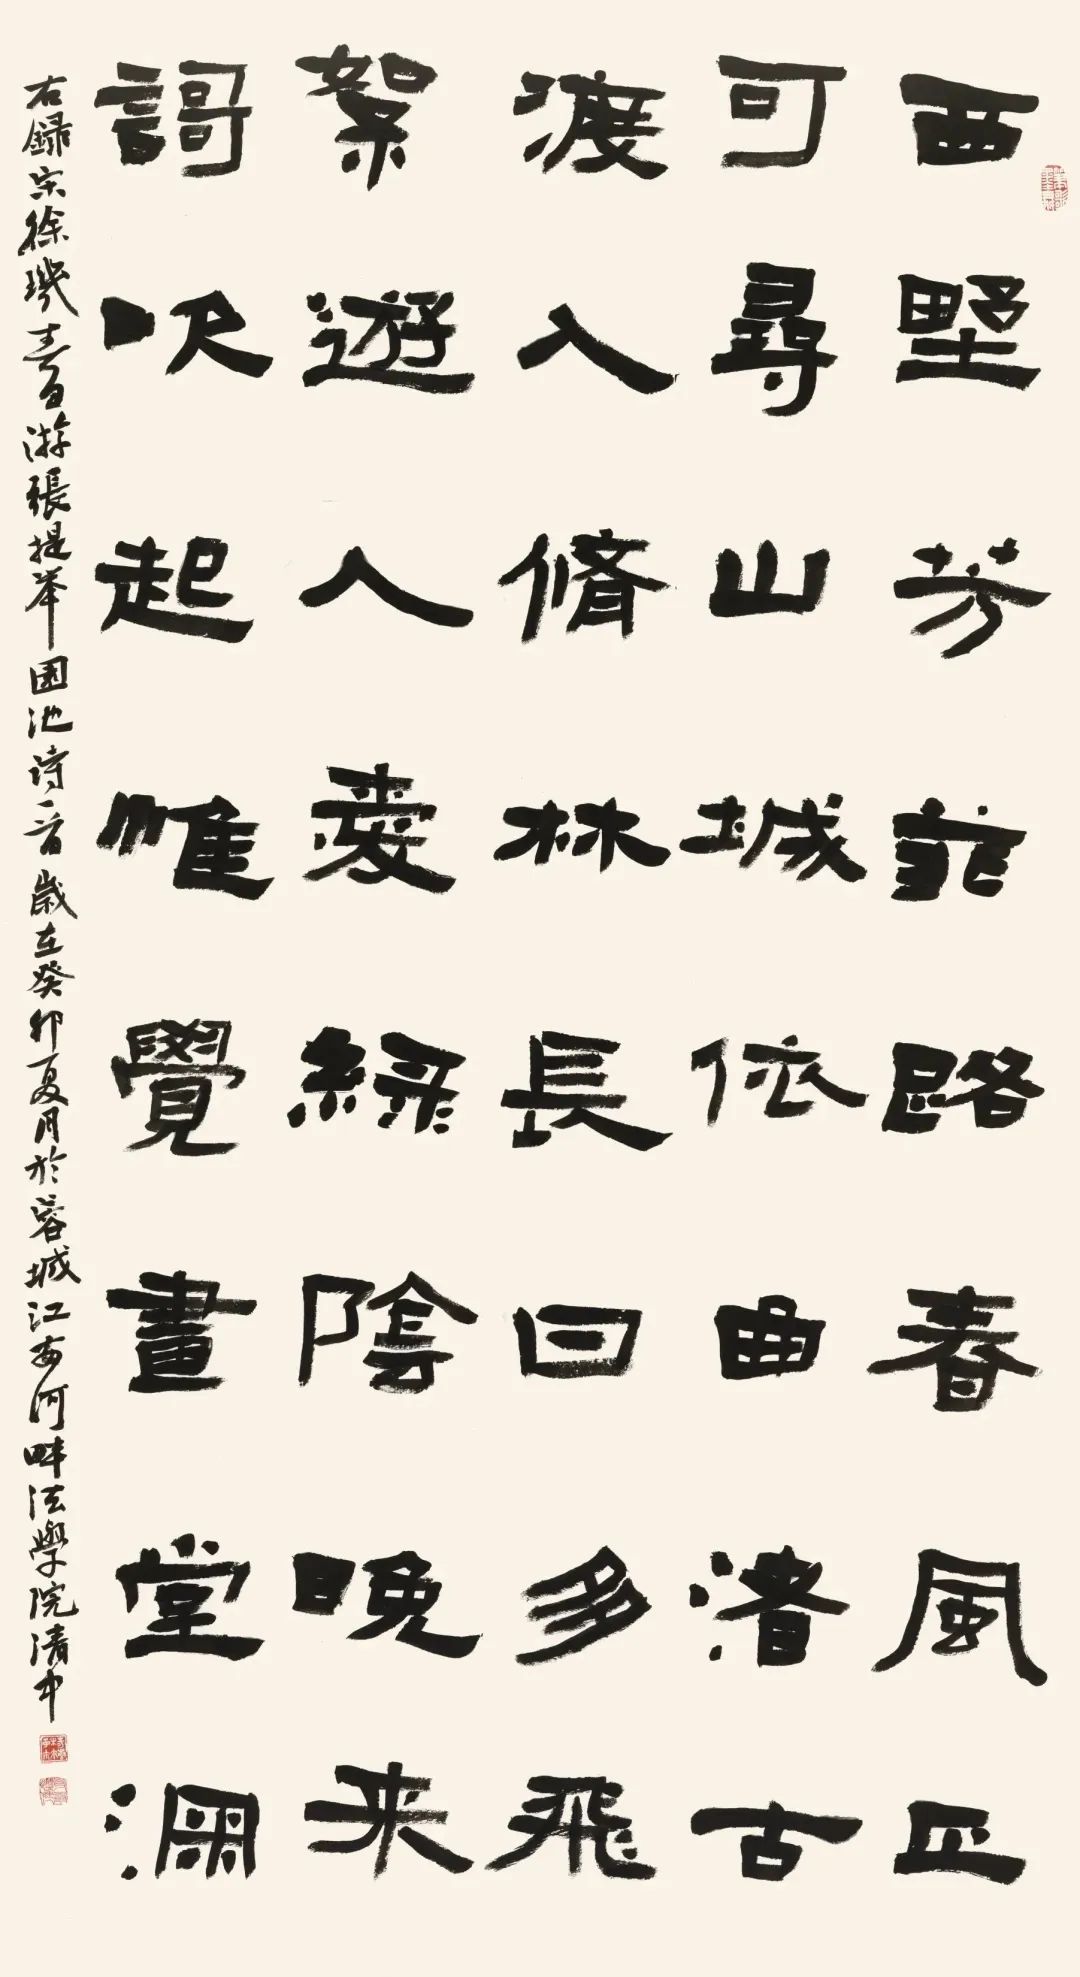 西野芳菲路春風正
可尋山城依曲渚古
渡入脩林長日多飛
絮遊人愛綠陰晚来
謌吹起惟覺畫堂淵
右録宋徐璣春日游張提举園池诗一首歲在癸卯夏月於蓉城江安河畔法學院清中